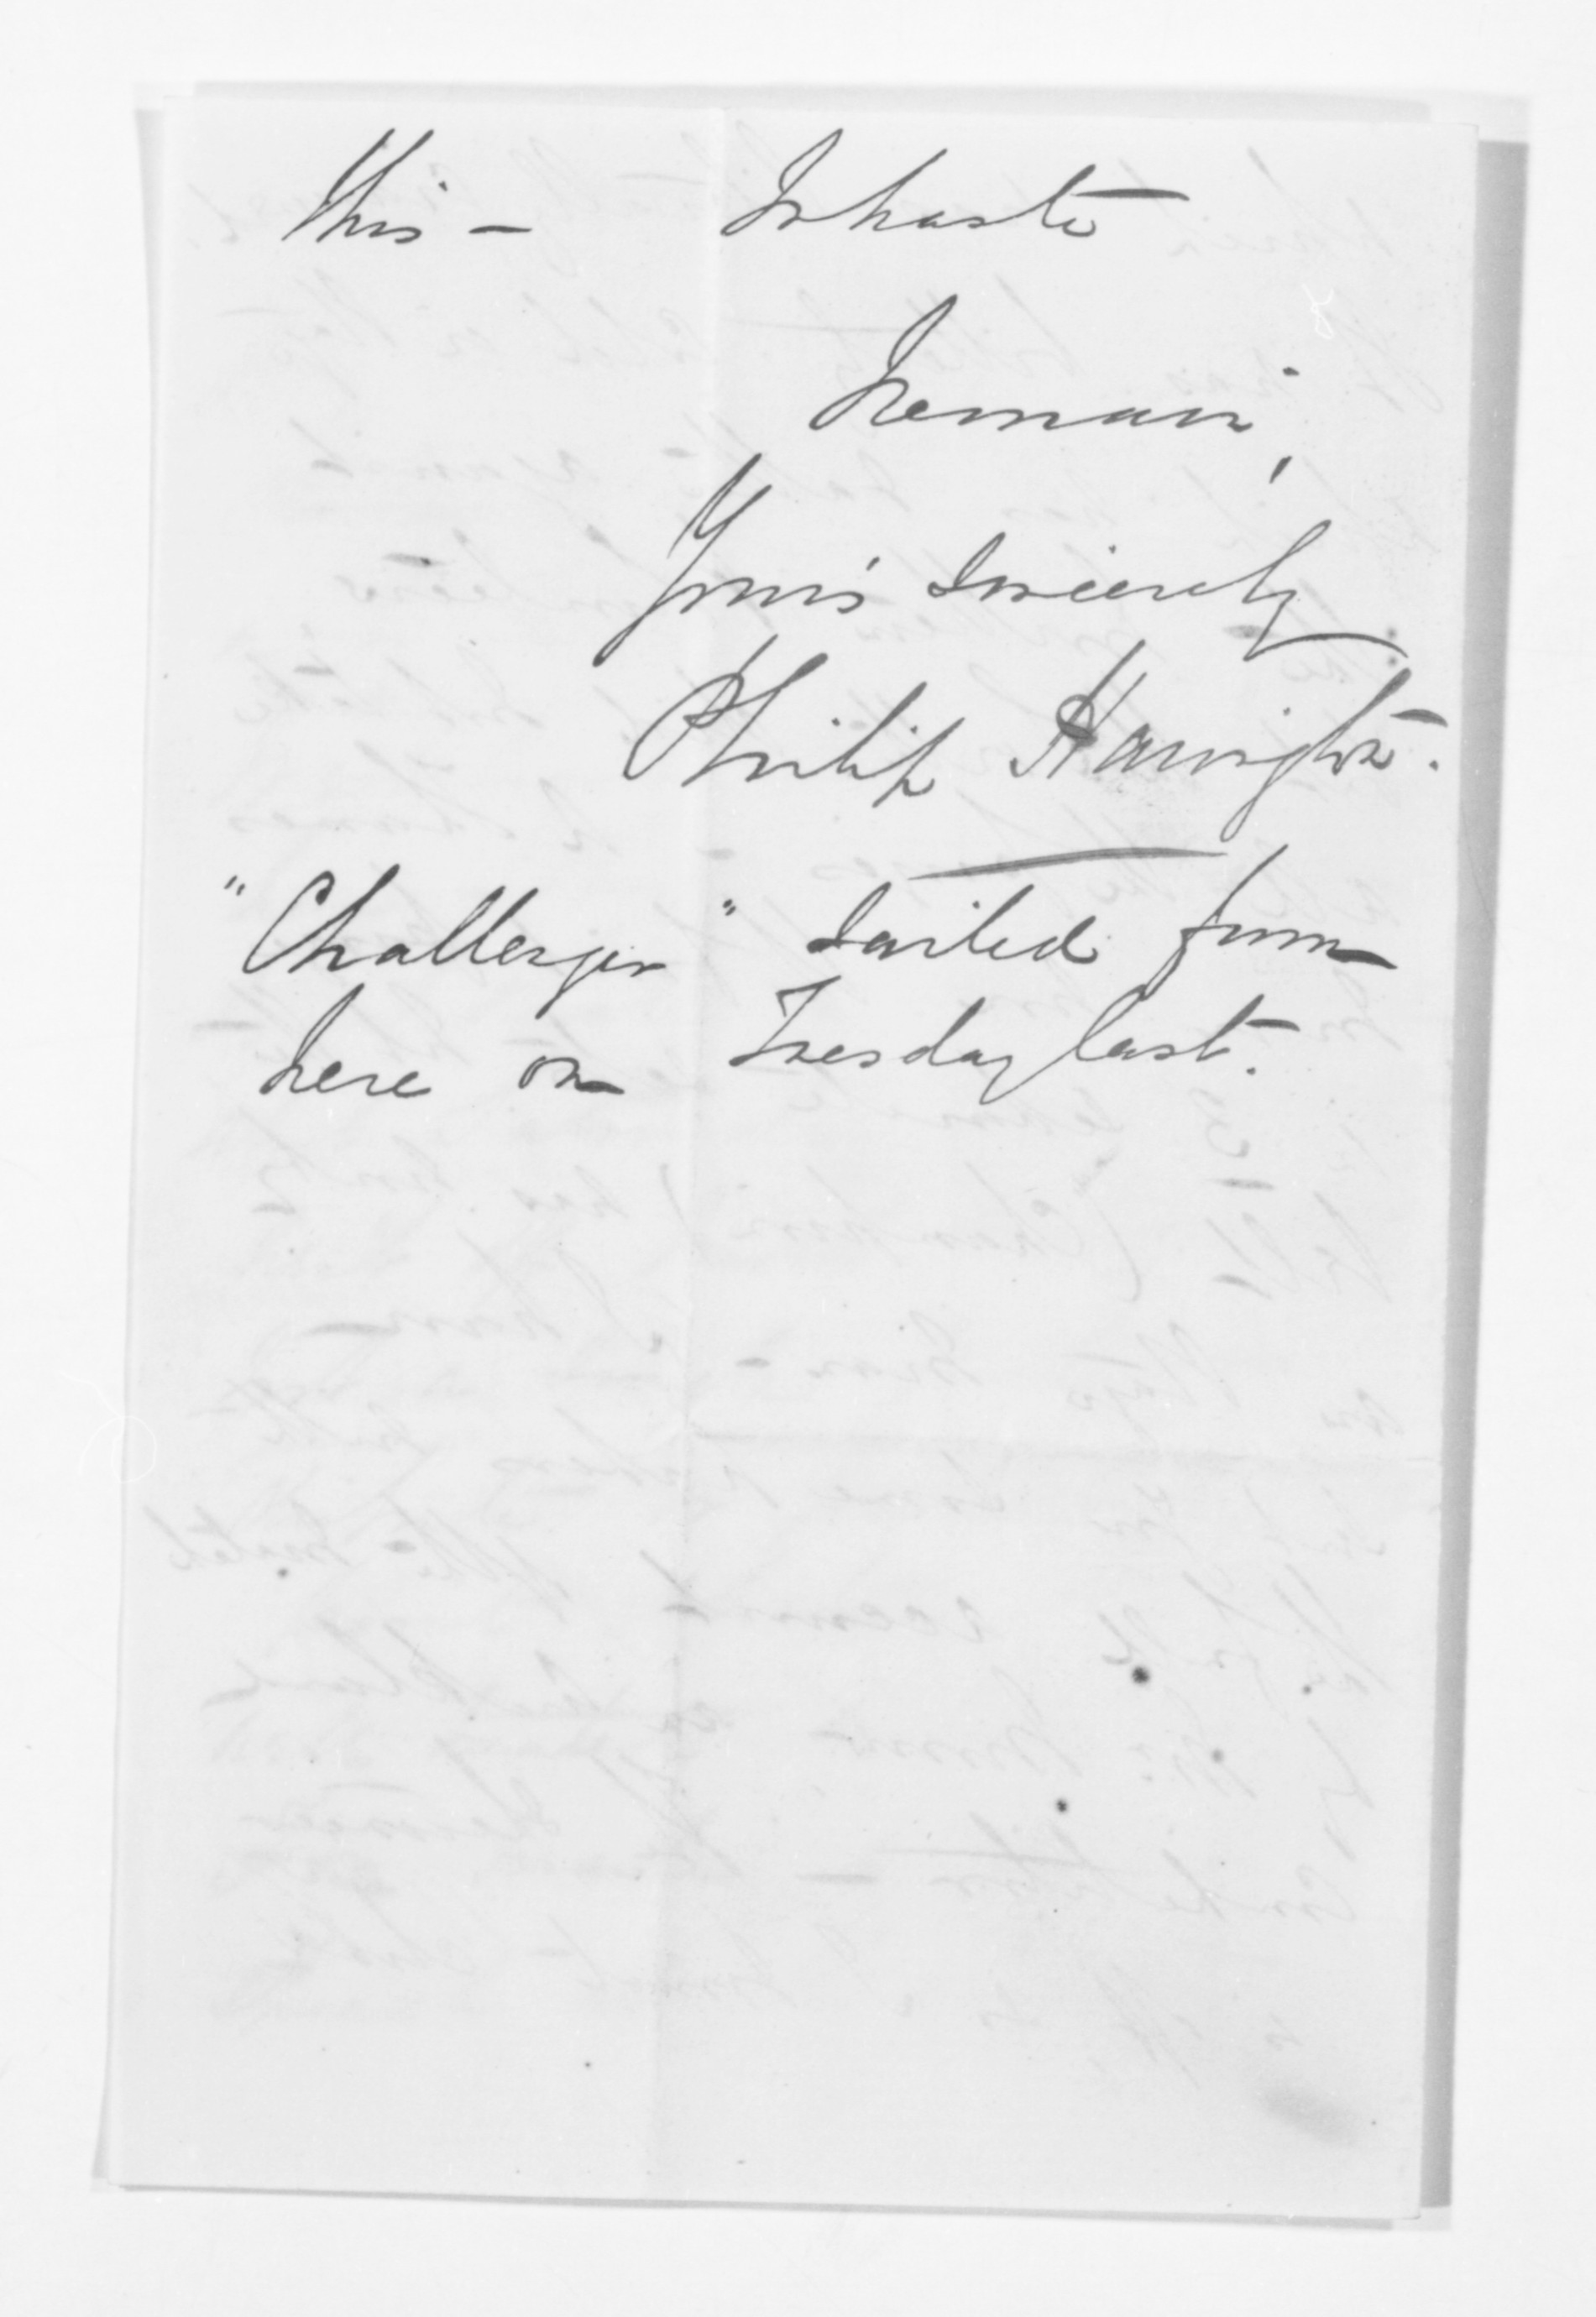 this — In haste
I remain,
Yours sincerely
Philip Harington.
"Challenger" sailed from
here on Tuesday last.